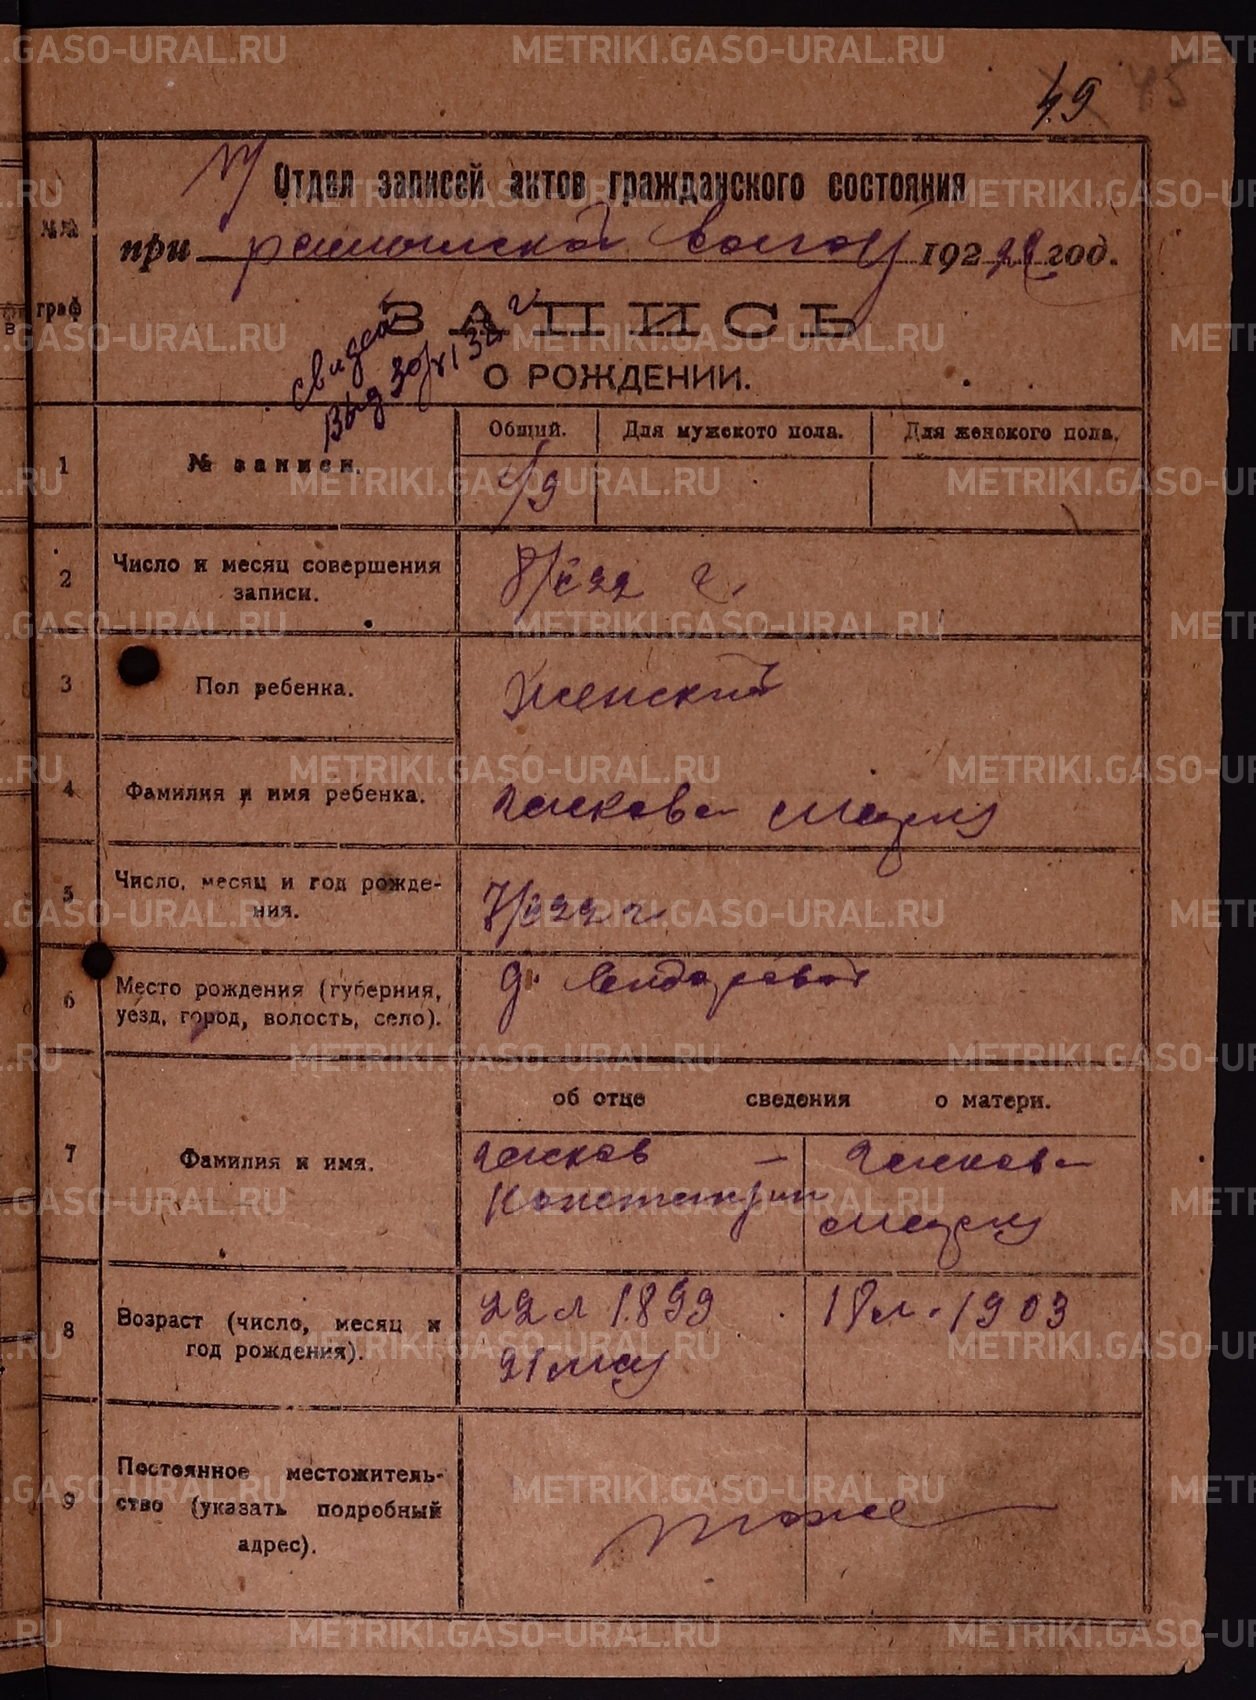 METRIKI.GASO-URAL.RU
49 45
№№ граф
Отдел записей актов гражданского состояния
при волос 1922 год.
ЗАПИСЬ
свидет
выд 30/XI 38 г
О РОЖДЕНИИ.
1 № записи. Общий. Для мужского пола. Для женского пола.
49
2 Число и месяц совершения записи. 8/ 22 г.
3 Пол ребенка. Женский
4 Фамилия и имя ребенка. Мария
5 Число, месяц и год рождения. 7/ 22 г.
6 Место рождения (губерния, уезд, город, волость, село). д.
об отце сведения о матери.
7 Фамилия и имя.
Константин Мария
8 Возраст (число, месяц и год рождения). 22 л 1899 18 л. 1903
21 мая
9 Постоянное местожительство (указать подробный адрес). тоже